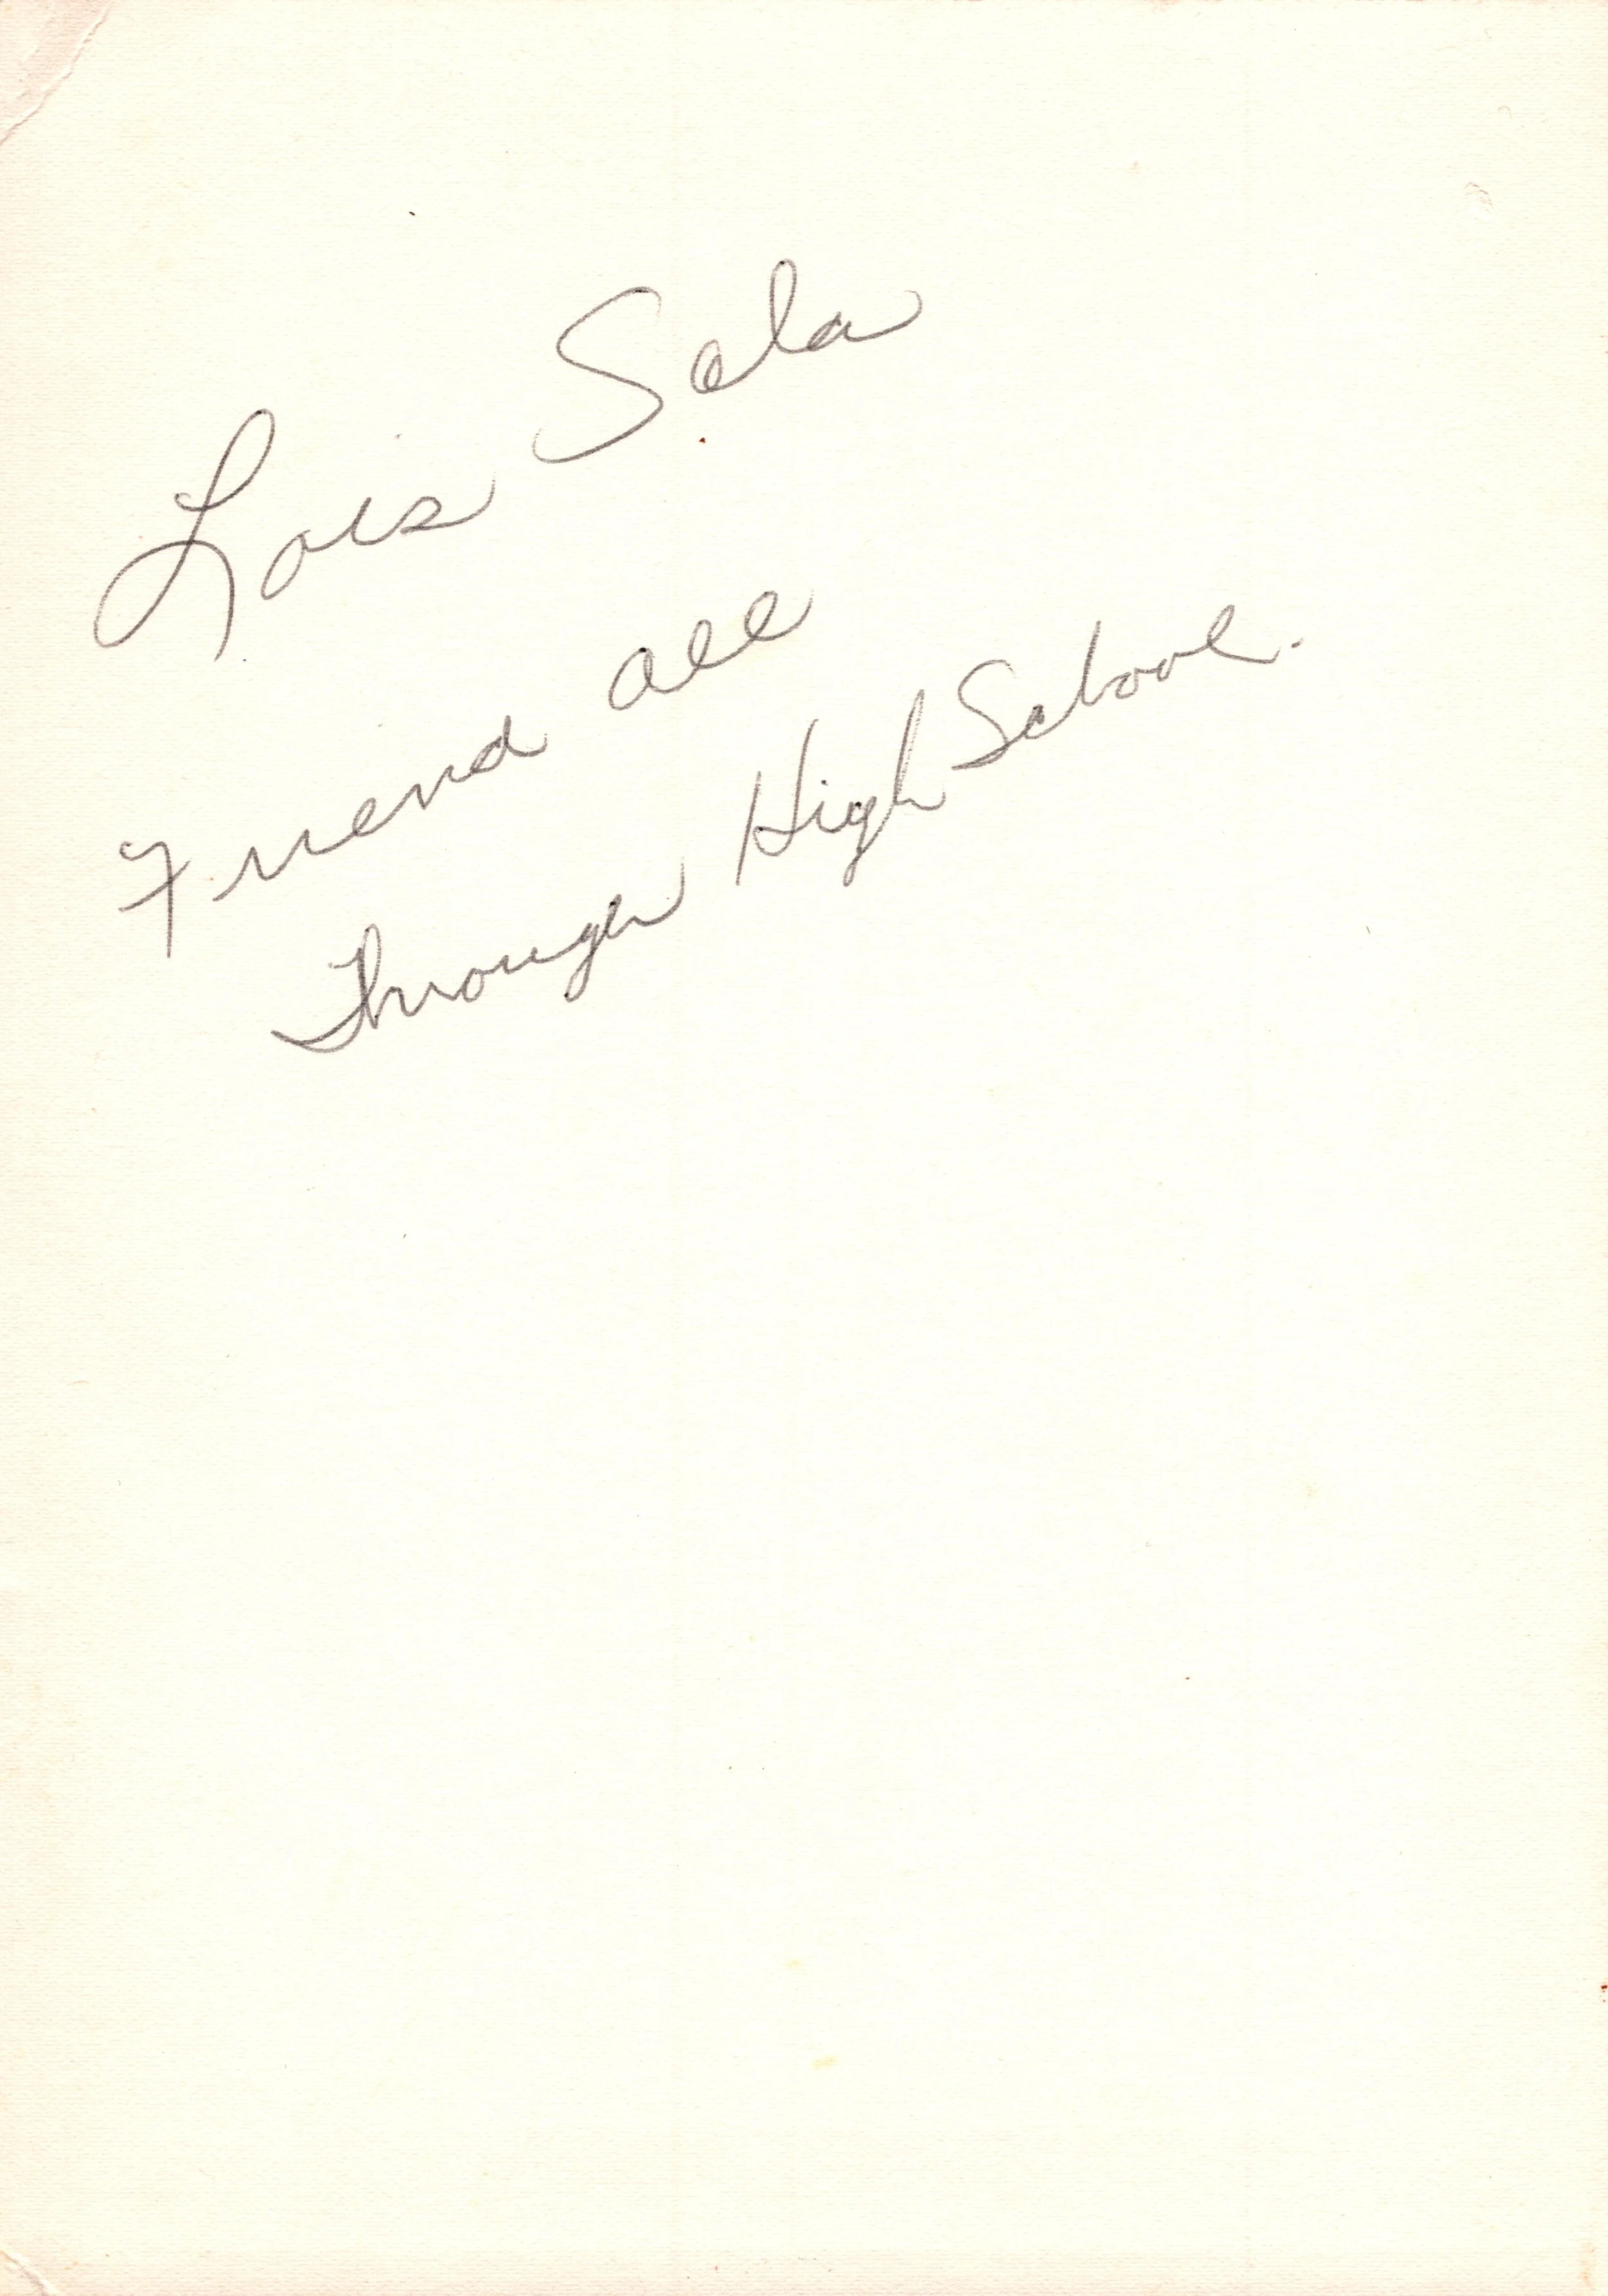 Lois Sala
Friend all
Through High School.